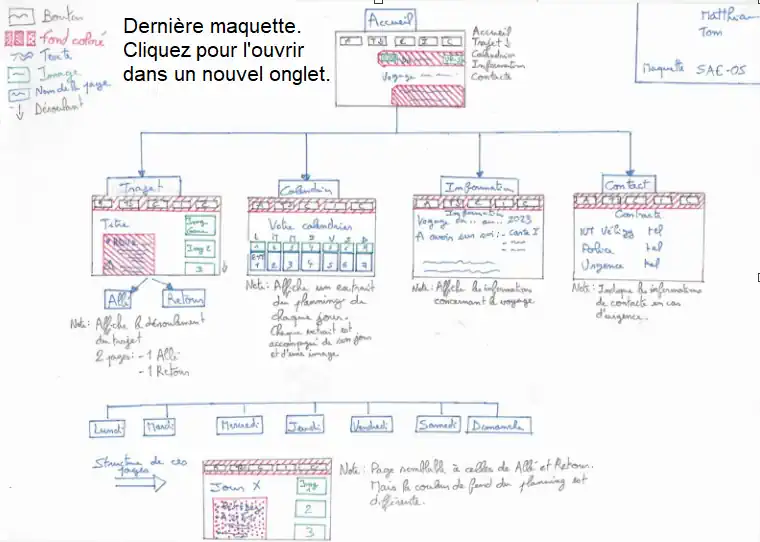 Bouton
Fond coloré
Texte
Image
Nom de la page
Déroulant
Dernière maquette.
Cliquez pour l'ouvrir
dans un nouvel onglet.
Accueil
Voyage
Accueil
Trajet ↓
Calendrier
Information
Contacte
Matthieu
Tom
Maquette SAE-05
Trajet
Titre
Img 2
3
Allé
Retour
Note: Affiche le déroulement
du trajet
2 pages: - 1 Allé
- 1 Retour
Calendrier
Votre calendrier
L M M J V S D
1 2 3 4 5 6 7
Note: Affiche un extrait
du planning de
chaque jour.
Chaque extrait est
accompagné de son jour
et d'une image.
Information
Information
Voyage du .. au ... 2023
A avoir sur soi: - carte I
Note: Affiche les informations
concernant le voyage
Contact
Contacte
IUT Vélizy tel
Police tel
Urgence tel
Note: Indique les informations
de contacte en cas
d'urgence.
Lundi
Mardi
Mercredi
Jeudi
Vendredi
Samedi
Dimanche
Structure de ces
pages
Jour X
Img
1
2
3
Note: Page semblable à celles de Allé et Retour.
Mais la couleur de fond du planning est
différente.